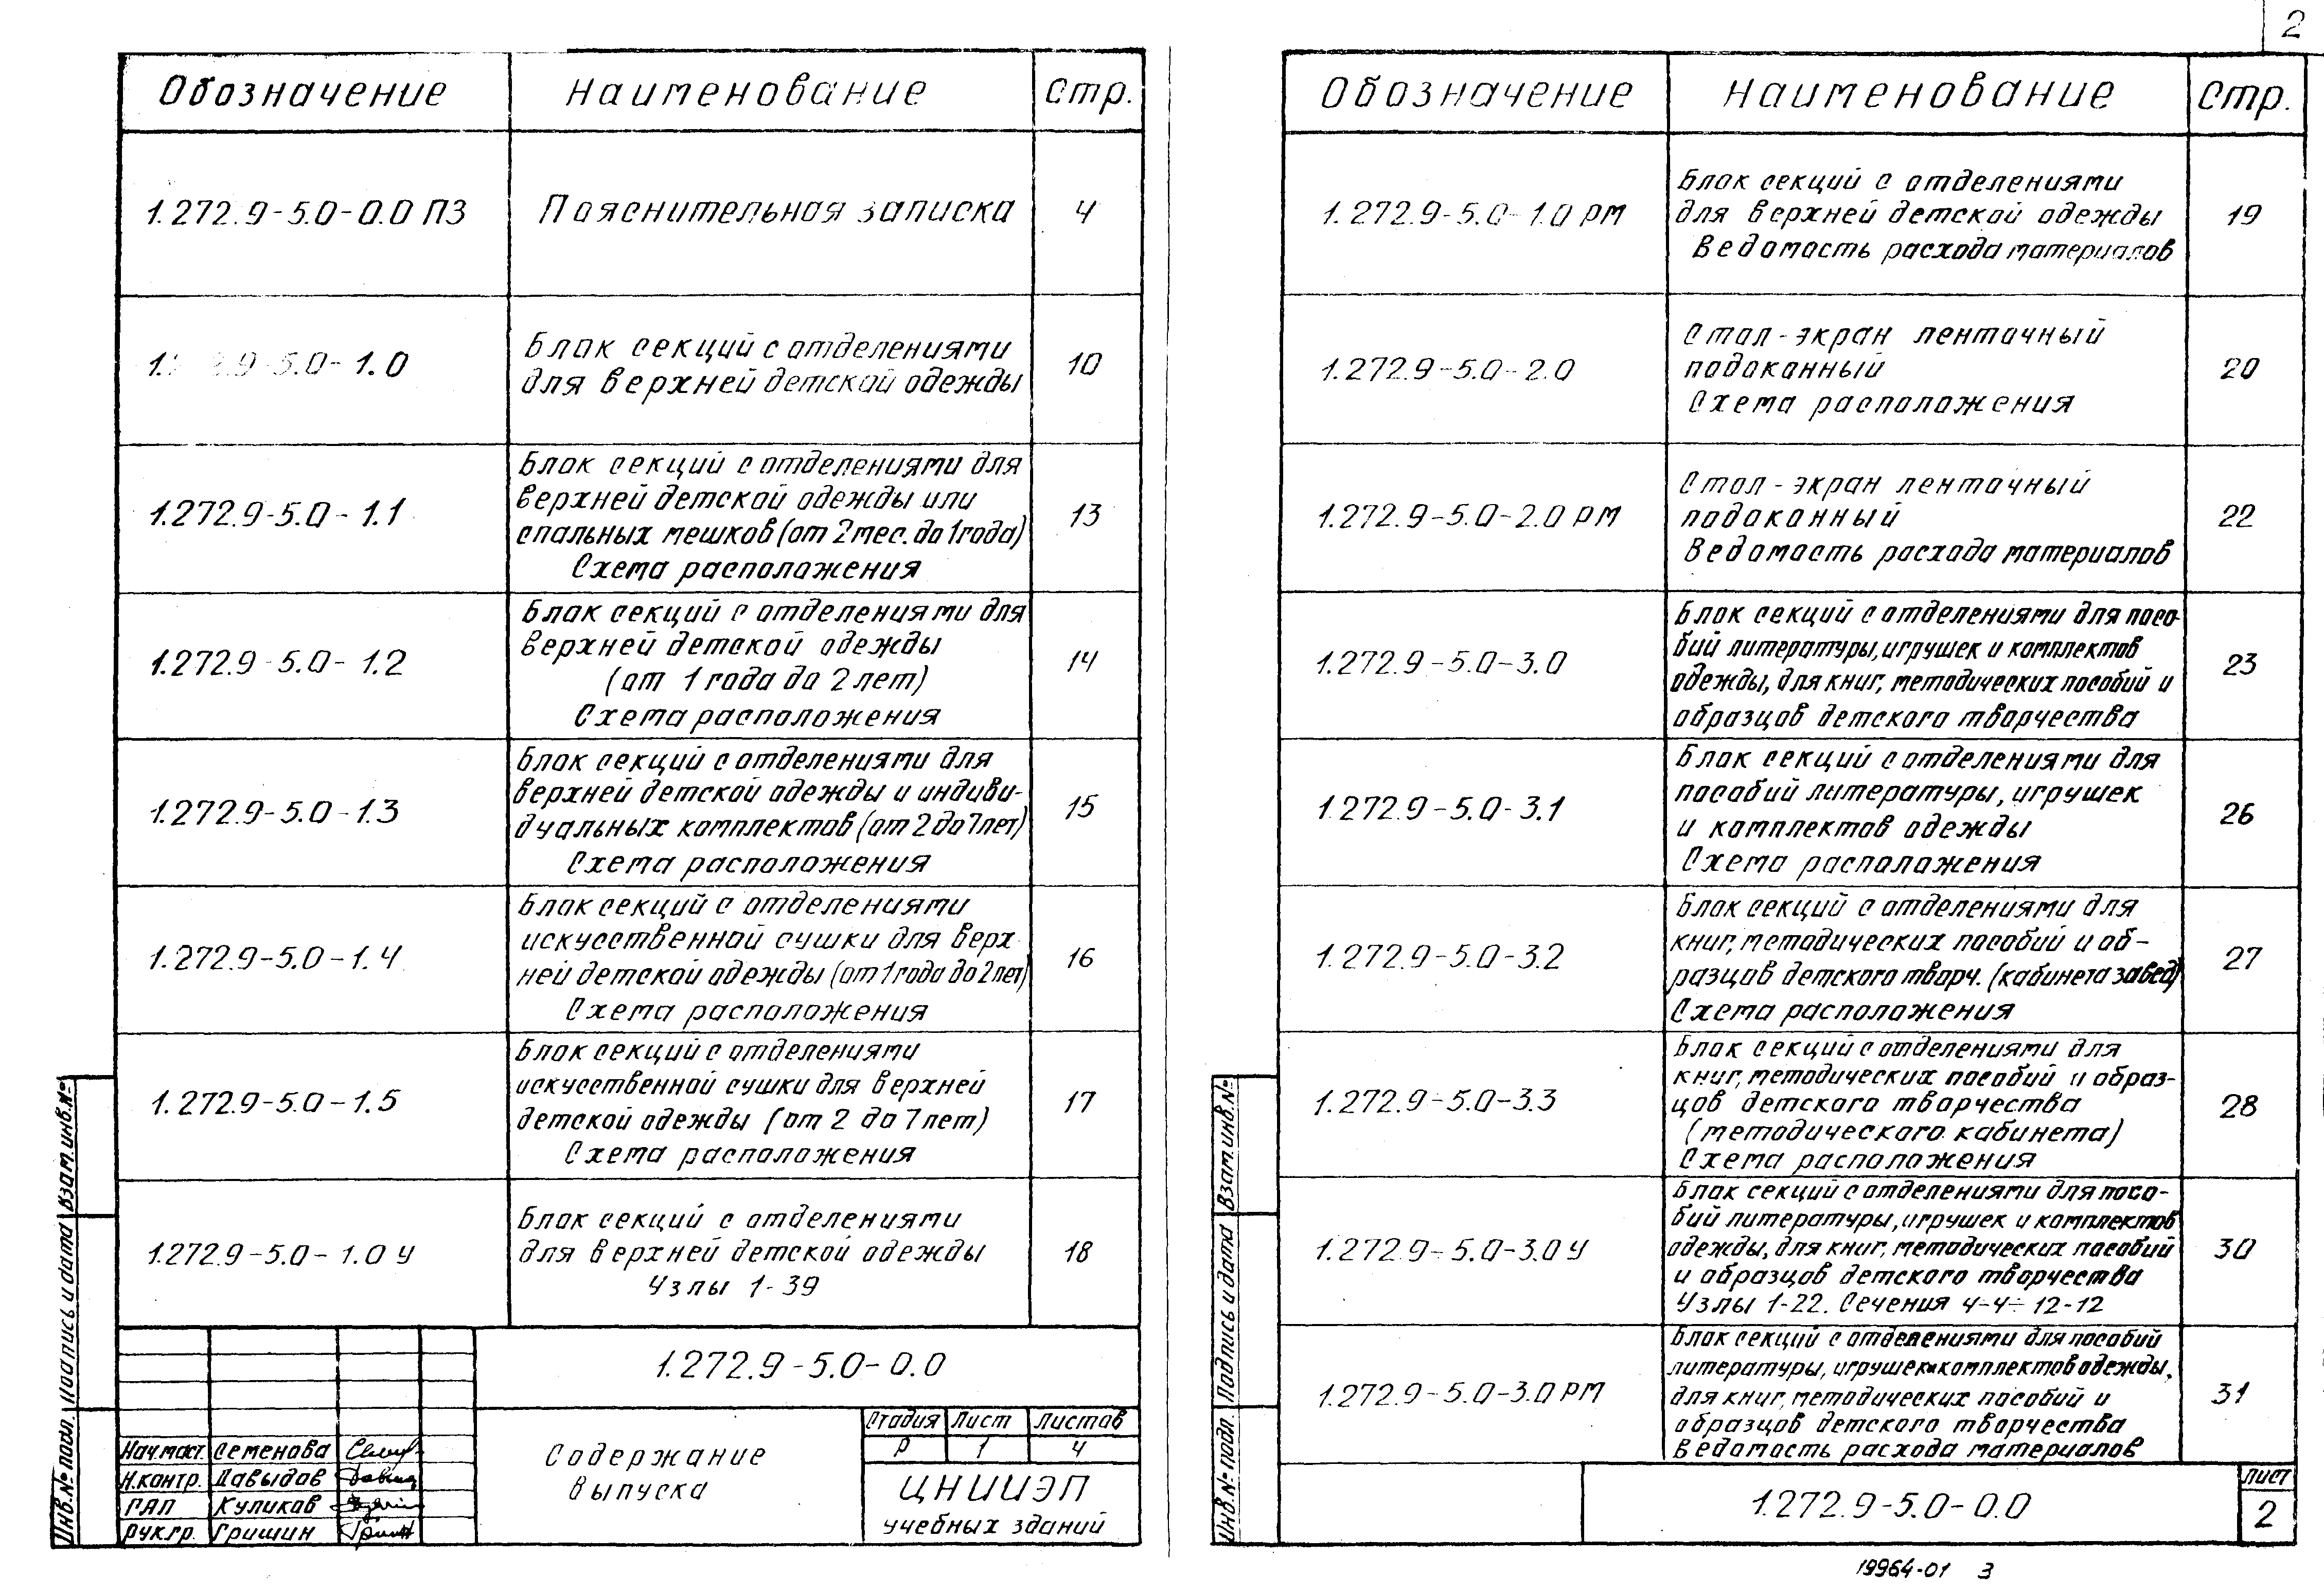 2
Обозначение Наименование Стр.
1.272.9-5.0-0.0 ПЗ Пояснительная записка 4
1. 2.9-5.0-1.0 Блок секций с отделениями
для верхней детской одежды 10
1.272.9-5.0-1.1 Блок секций с отделениями для
верхней детской одежды или
спальных мешков (от 2 мес. до 1 года)
Схема расположения 13
1.272.9-5.0-1.2 Блок секций с отделениями для
верхней детской одежды
(от 1 года до 2 лет)
Схема расположения 14
1.272.9-5.0-1.3 Блок секций с отделениями для
верхней детской одежды и индиви-
дуальных комплектов (от 2 до 7 лет)
Схема расположения 15
1.272.9-5.0-1.4 Блок секций с отделениями
искусственной сушки для верх
ней детской одежды (от 1 года до 2 лет)
Схема расположения 16
1.272.9-5.0-1.5 Блок секций с отделениями
искусственной сушки для верхней
детской одежды (от 2 до 7 лет)
Схема расположения 17
1.272.9-5.0-1.0 У Блок секций с отделениями
для верхней детской одежды
Узлы 1-39 18
1.272.9-5.0-0.0
Содержание
выпуска
Стадия Лист Листов
Р 1 4
ЦНИИЭП
учебных зданий
Нач.маст. Семенова
Н.контр. Давыдов
ГАП Куликов
Рук.гр. Гришин
Инв.№ подл. Подпись и дата Взам.инв.№
Обозначение Наименование Стр.
1.272.9-5.0-1.0 РМ Блок секций с отделениями
для верхней детской одежды
Ведомость расхода материалов 19
1.272.9-5.0-2.0 Стол-экран ленточный
подоконный
Схема расположения 20
1.272.9-5.0-2.0 РМ Стол-экран ленточный
подоконный
Ведомость расхода материалов 22
1.272.9-5.0-3.0 Блок секций с отделениями для посо-
бий литературы, игрушек и комплектов
одежды, для книг, методических пособий и
образцов детского творчества 23
1.272.9-5.0-3.1 Блок секций с отделениями для
пособий литературы, игрушек
и комплектов одежды
Схема расположения 26
1.272.9-5.0-3.2 Блок секций с отделениями для
книг, методических пособий и об-
разцов детского творч. (кабинета завед)
Схема расположения 27
1.272.9-5.0-3.3 Блок секций с отделениями для
книг, методических пособий и образ-
цов детского творчества
(методического кабинета)
Схема расположения 28
1.272.9-5.0-3.0 У Блок секций с отделениями для посо-
бий литературы, игрушек и комплектов
одежды, для книг, методических пособий
и образцов детского творчества
Узлы 1-22. Сечения 4-4÷12-12 30
1.272.9-5.0-3.0 РМ Блок секций с отделениями для пособий
литературы, игрушек и комплектов одежды,
для книг, методических пособий и
образцов детского творчества
Ведомость расхода материалов 31
1.272.9-5.0-0.0
Лист
2
Инв.№ подл. Подпись и дата Взам.инв.№
19964-01 3